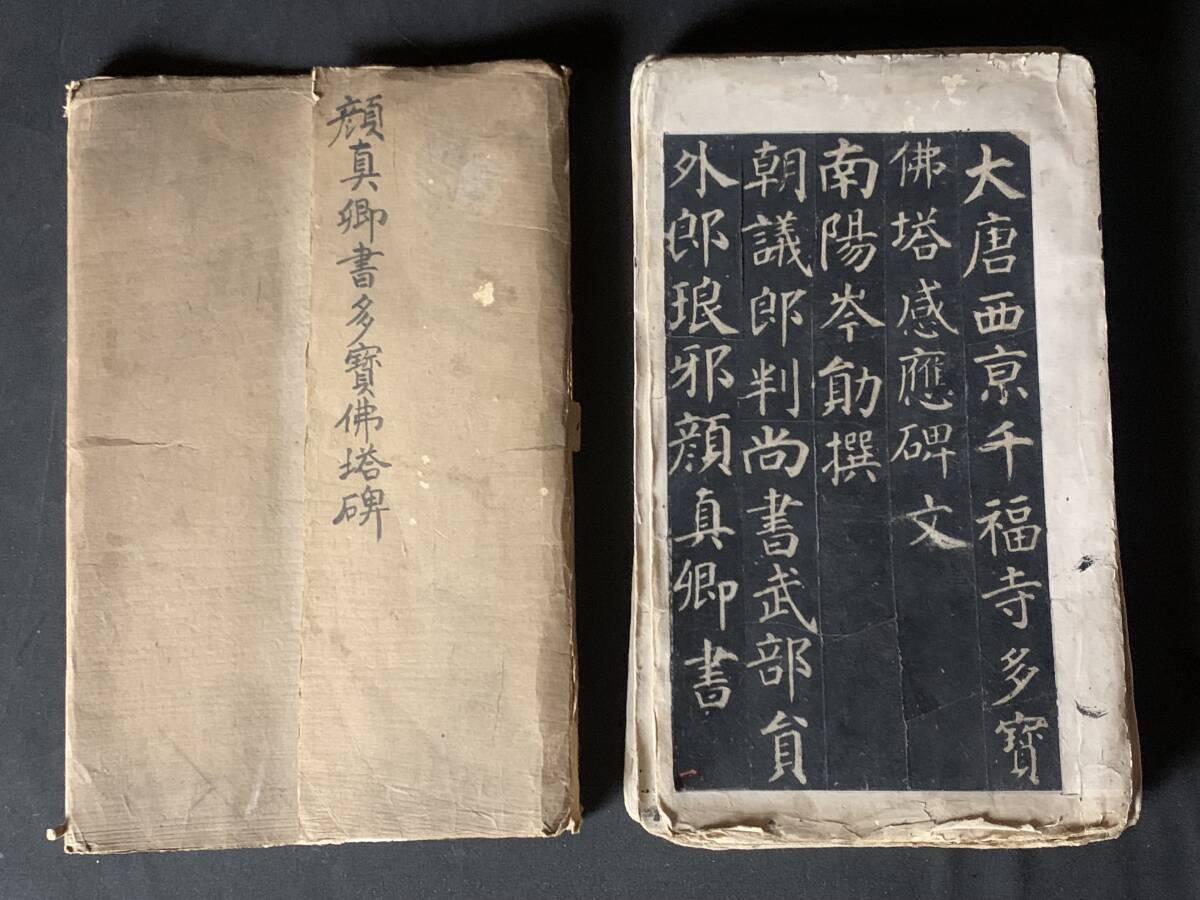 顔真卿書多寶佛塔碑
大唐西京千福寺多寶
佛塔感應碑文
南陽岑勛撰
朝議郎判尚書武部員
外郎琅邪顔真卿書
一